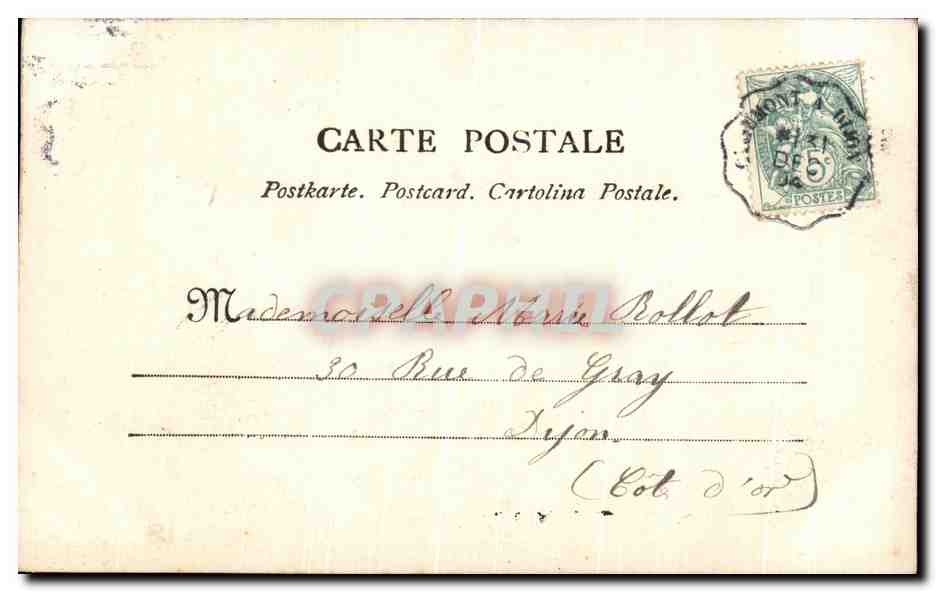 CARTE POSTALE
Postkarte. Postcard. Cartolina Postale.
CHAUMONT A DIJON
31
DEC
04
5c
POSTES
Mademoiselle Marie Rollot
30 Rue de Gray
Dijon.
(Côte d'or)
CPAPHIL